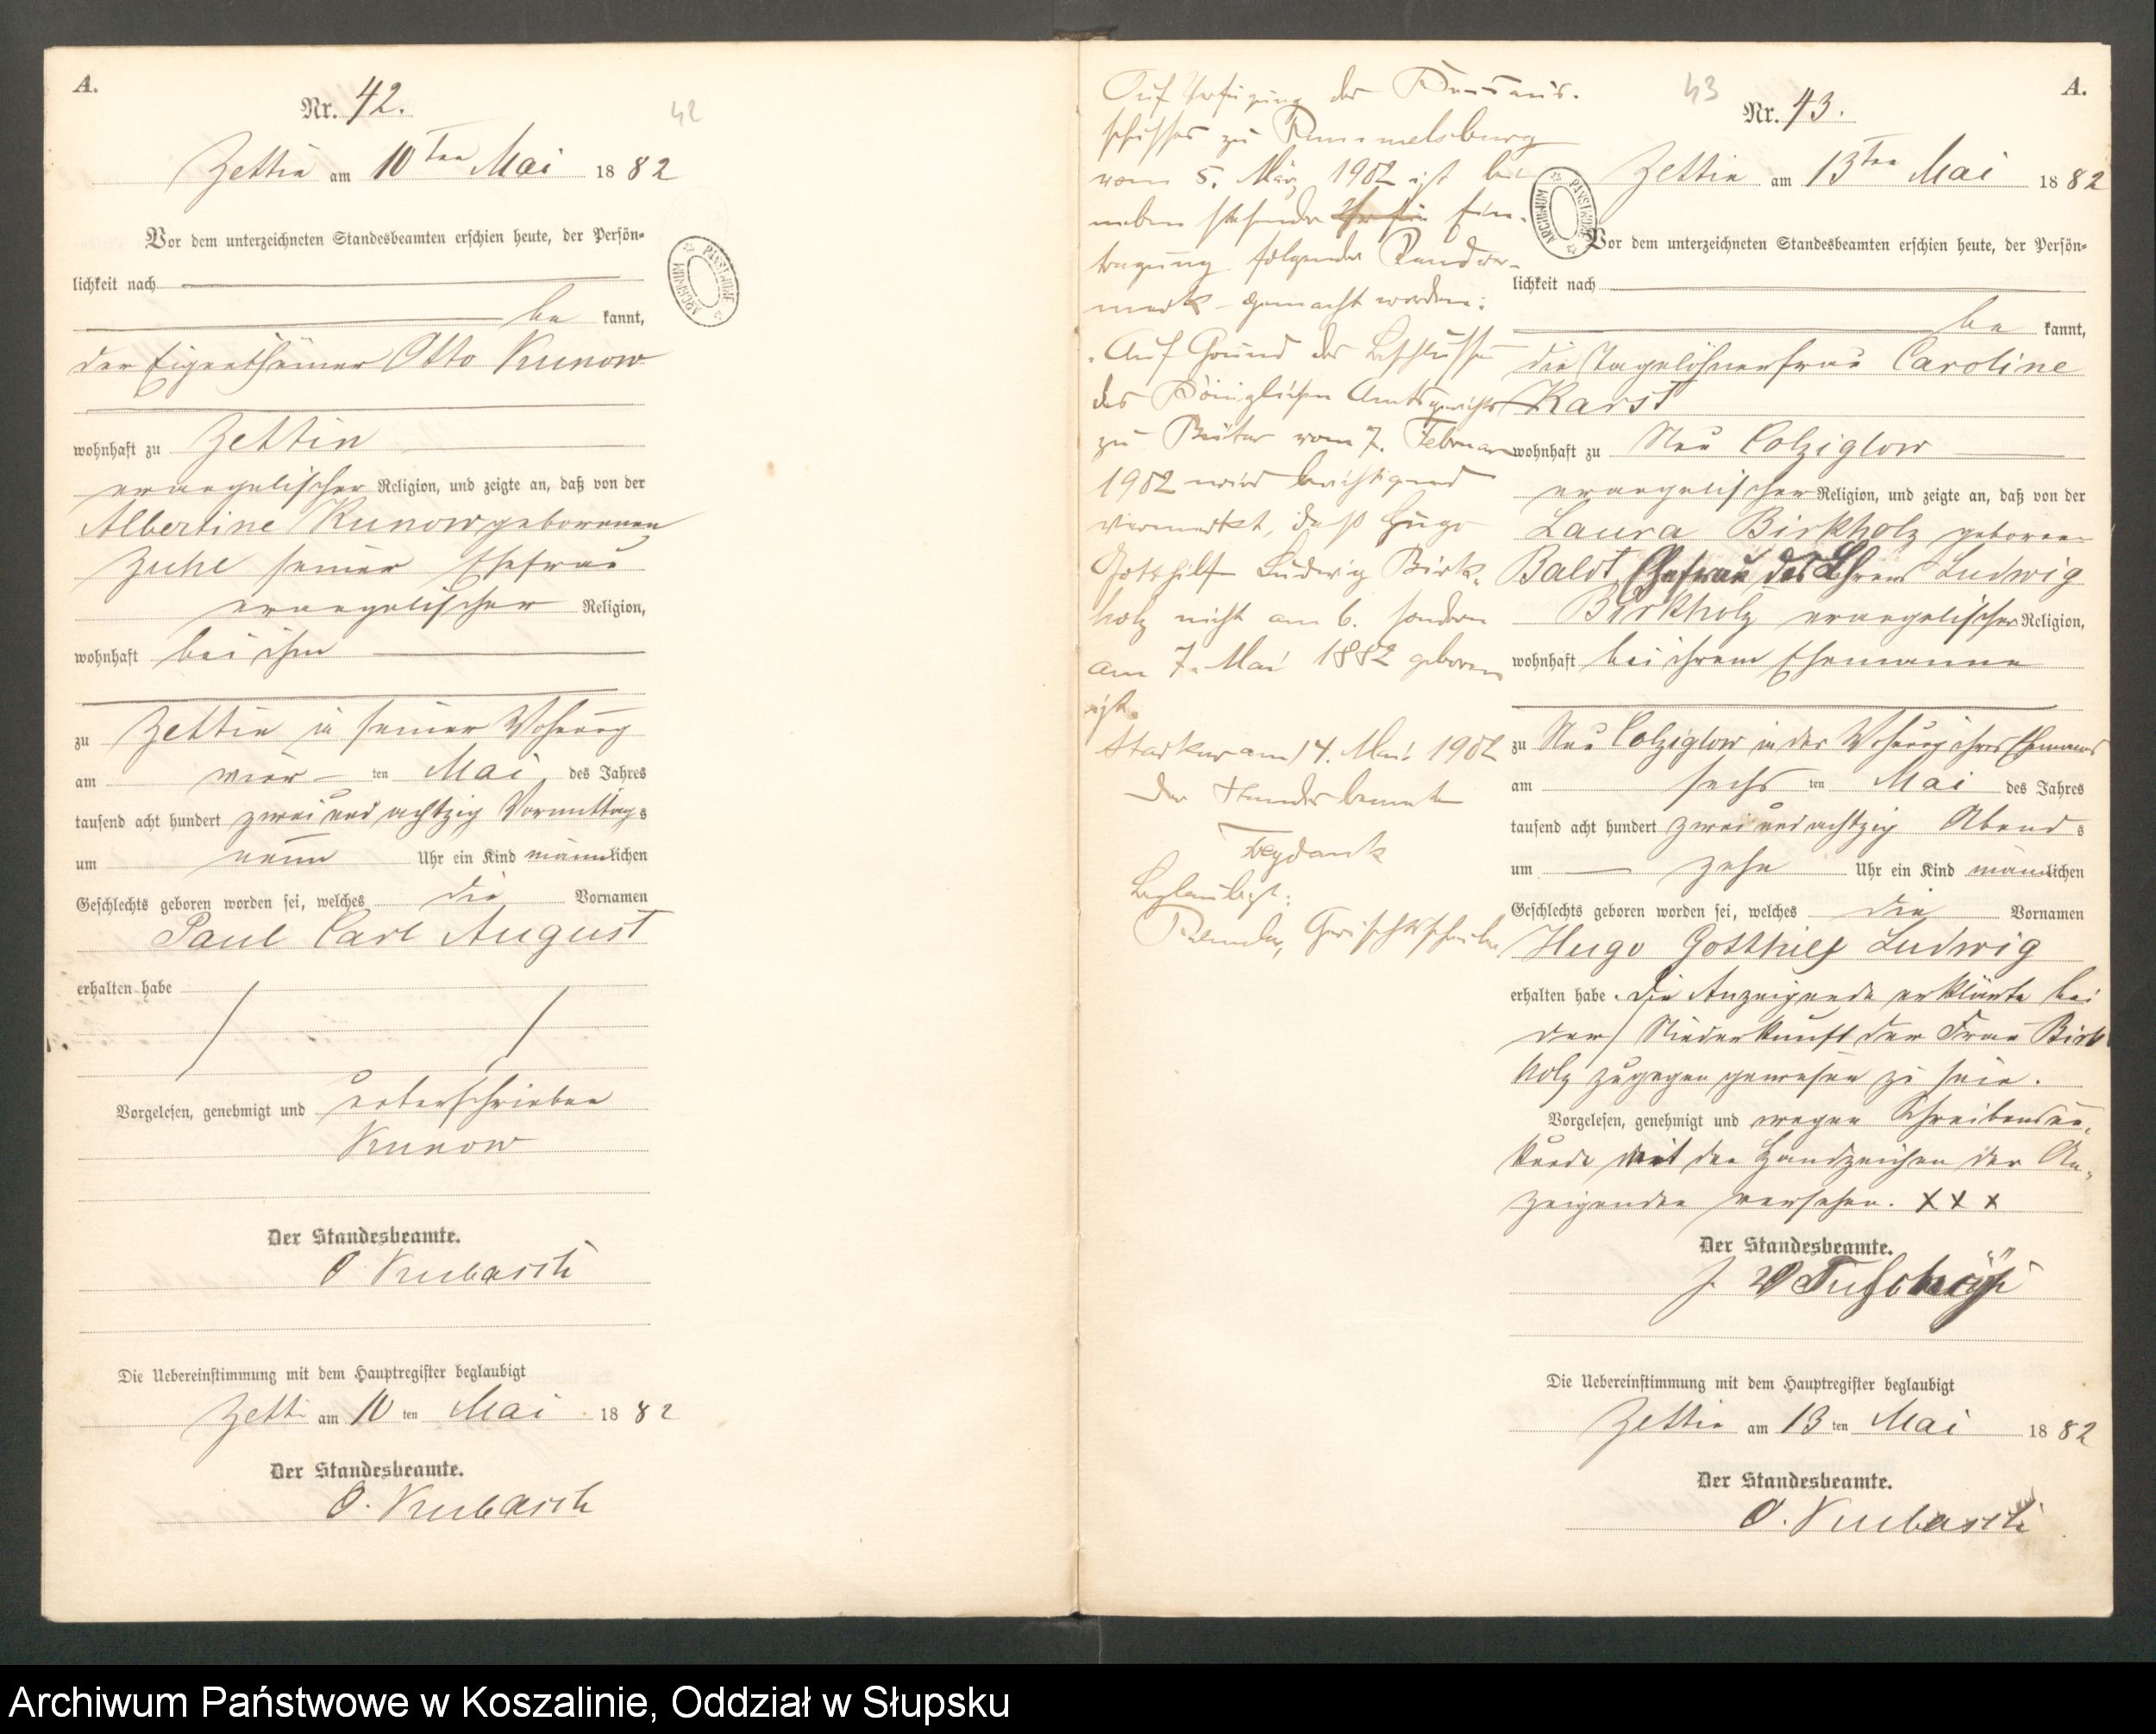 A.
Nr. 42.
42
Zettin am 10ten Mai 1882
Vor dem unterzeichneten Standesbeamten erschien heute, der Persön-
lichkeit nach
be kannt,
der Eigenthümer Otto Kunow
wohnhaft zu Zettin
evangelischer Religion, und zeigte an, daß von der
Albertine Kunow geborenen
Zuhl seiner Ehefrau
evangelischer Religion,
wohnhaft bei ihm
zu Zettin in seiner Wohnung
am vier ten Mai des Jahres
tausend acht hundert zwei und achtzig Vormittags
um neun Uhr ein Kind männlichen
Geschlechts geboren worden sei, welches die Vornamen
Paul Carl August
erhalten habe
Vorgelesen, genehmigt und unterschrieben
Kunow
Der Standesbeamte.
O Kubasch
Die Uebereinstimmung mit dem Hauptregister beglaubigt
Zetti am 10 ten Mai 1882
Der Standesbeamte.
O. Kubasch
ARCHIWUM PAŃSTWOWE
Auf Verfügung des
zu Rummelsburg
vom 5. März 1902 ist bei
neben stehender Ein-
tragung folgender Randver-
merk gemacht worden:
Auf Grund des Beschlusses
des Königlichen Amtsgerichts
zu Bütow vom 7. Februar
1902 wird berichtigend
vermerkt, daß Hugo
Gotthilf Ludwig Birk-
holz nicht am 6. sondern
am 7. Mai 1882 geboren
ist.
am 14. Mai 1902
Der Standesbeamte
Feydank
Beglaubigt:
Gerichtsschreiber
43
A.
Nr. 43.
ARCHIWUM PAŃSTWOWE
Zettin am 13ten Mai 1882
Vor dem unterzeichneten Standesbeamten erschien heute, der Persön-
lichkeit nach
be kannt,
die Tagelöhnerfrau Caroline
Karst
wohnhaft zu Neu Colziglow
evangelischer Religion, und zeigte an, daß von der
Laura Birkholz geboren
Baldt, Ehefrau des Ludwig
Birkholz evangelischer Religion,
wohnhaft bei ihrem Ehemanne
zu Neu Colziglow in der Wohnung ihres Ehemanns
am sechs ten Mai des Jahres
tausend acht hundert zwei und achtzig Abends
um zehn Uhr ein Kind männlichen
Geschlechts geboren worden sei, welches die Vornamen
Hugo Gotthilf Ludwig
erhalten habe. Die Anzeigende erklärte bei
der Niederkunft der Frau Birk
holz zugegen gewesen zu sein.
Vorgelesen, genehmigt und wegen Schreibensun-
kunde mit den Handzeichen der An-
zeigenden versehen. XXX
Der Standesbeamte.
Die Uebereinstimmung mit dem Hauptregister beglaubigt
Zettin am 13 ten Mai 1882
Der Standesbeamte.
O. Kubasch
Archiwum Państwowe w Koszalinie, Oddział w Słupsku